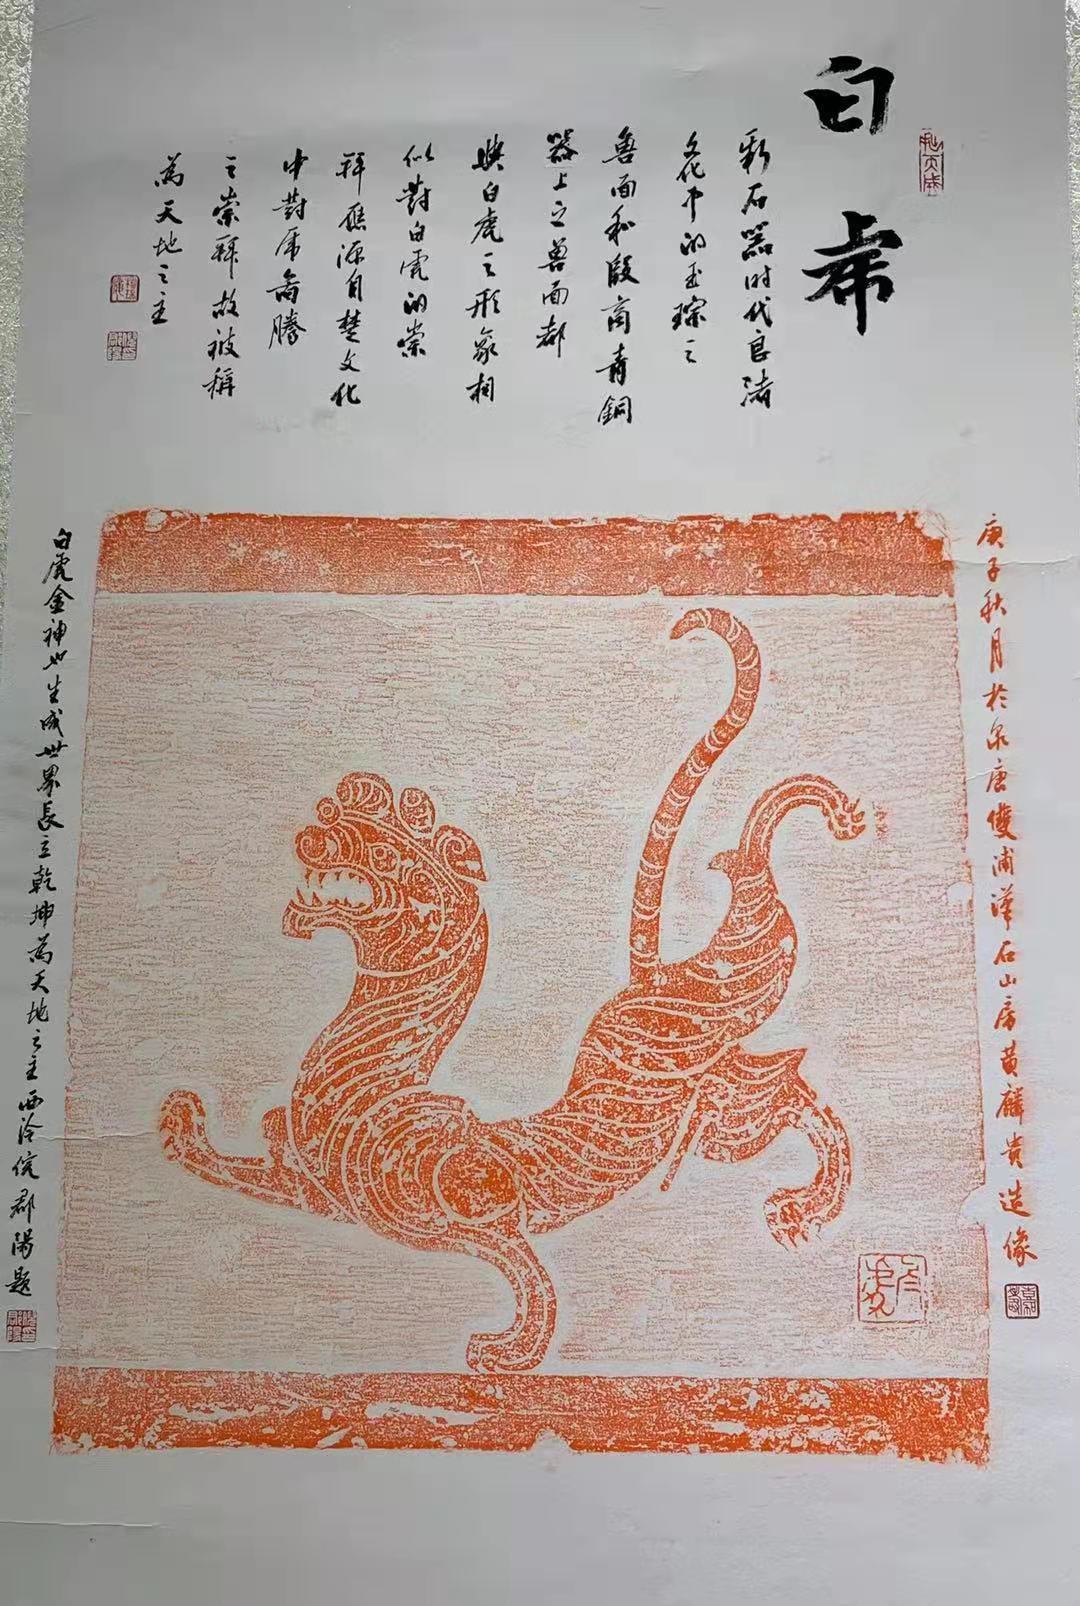 白虎
新石器时代良渚
文化中的玉琮之
兽面和殷商青銅
器上之兽面都
與白虎之形象相
似對白虎的崇
拜應源自楚文化
中對虎啚腾
之崇拜故被稱
為天地之主
庚子秋月於泉唐雙浦漢石山房黄麟贵造像
白虎金神也生成世界長立乾坤為天地之主西泠倪郡陽题